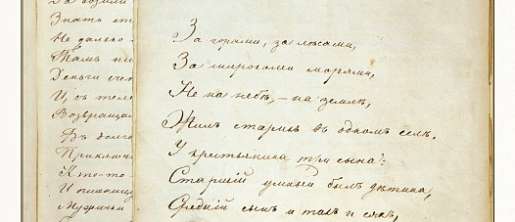 Знать сто
Не далеко
Тамъ пш
Деньги сче
И съ
Возвращал
Въ долго
Кто-то
И пшениц
Мужички
За горами, за лѣсами,
За широкими морями,
Не на небѣ, — на землѣ,
Жилъ старикъ въ одномъ селѣ.
У крестьянина три сына:
Старшій умный былъ дѣтина,
Средній сынъ и такъ и сякъ,